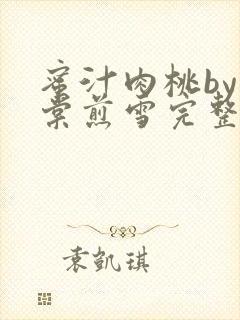 蜜汁肉桃by
棠煎雪完整
袁凯琪